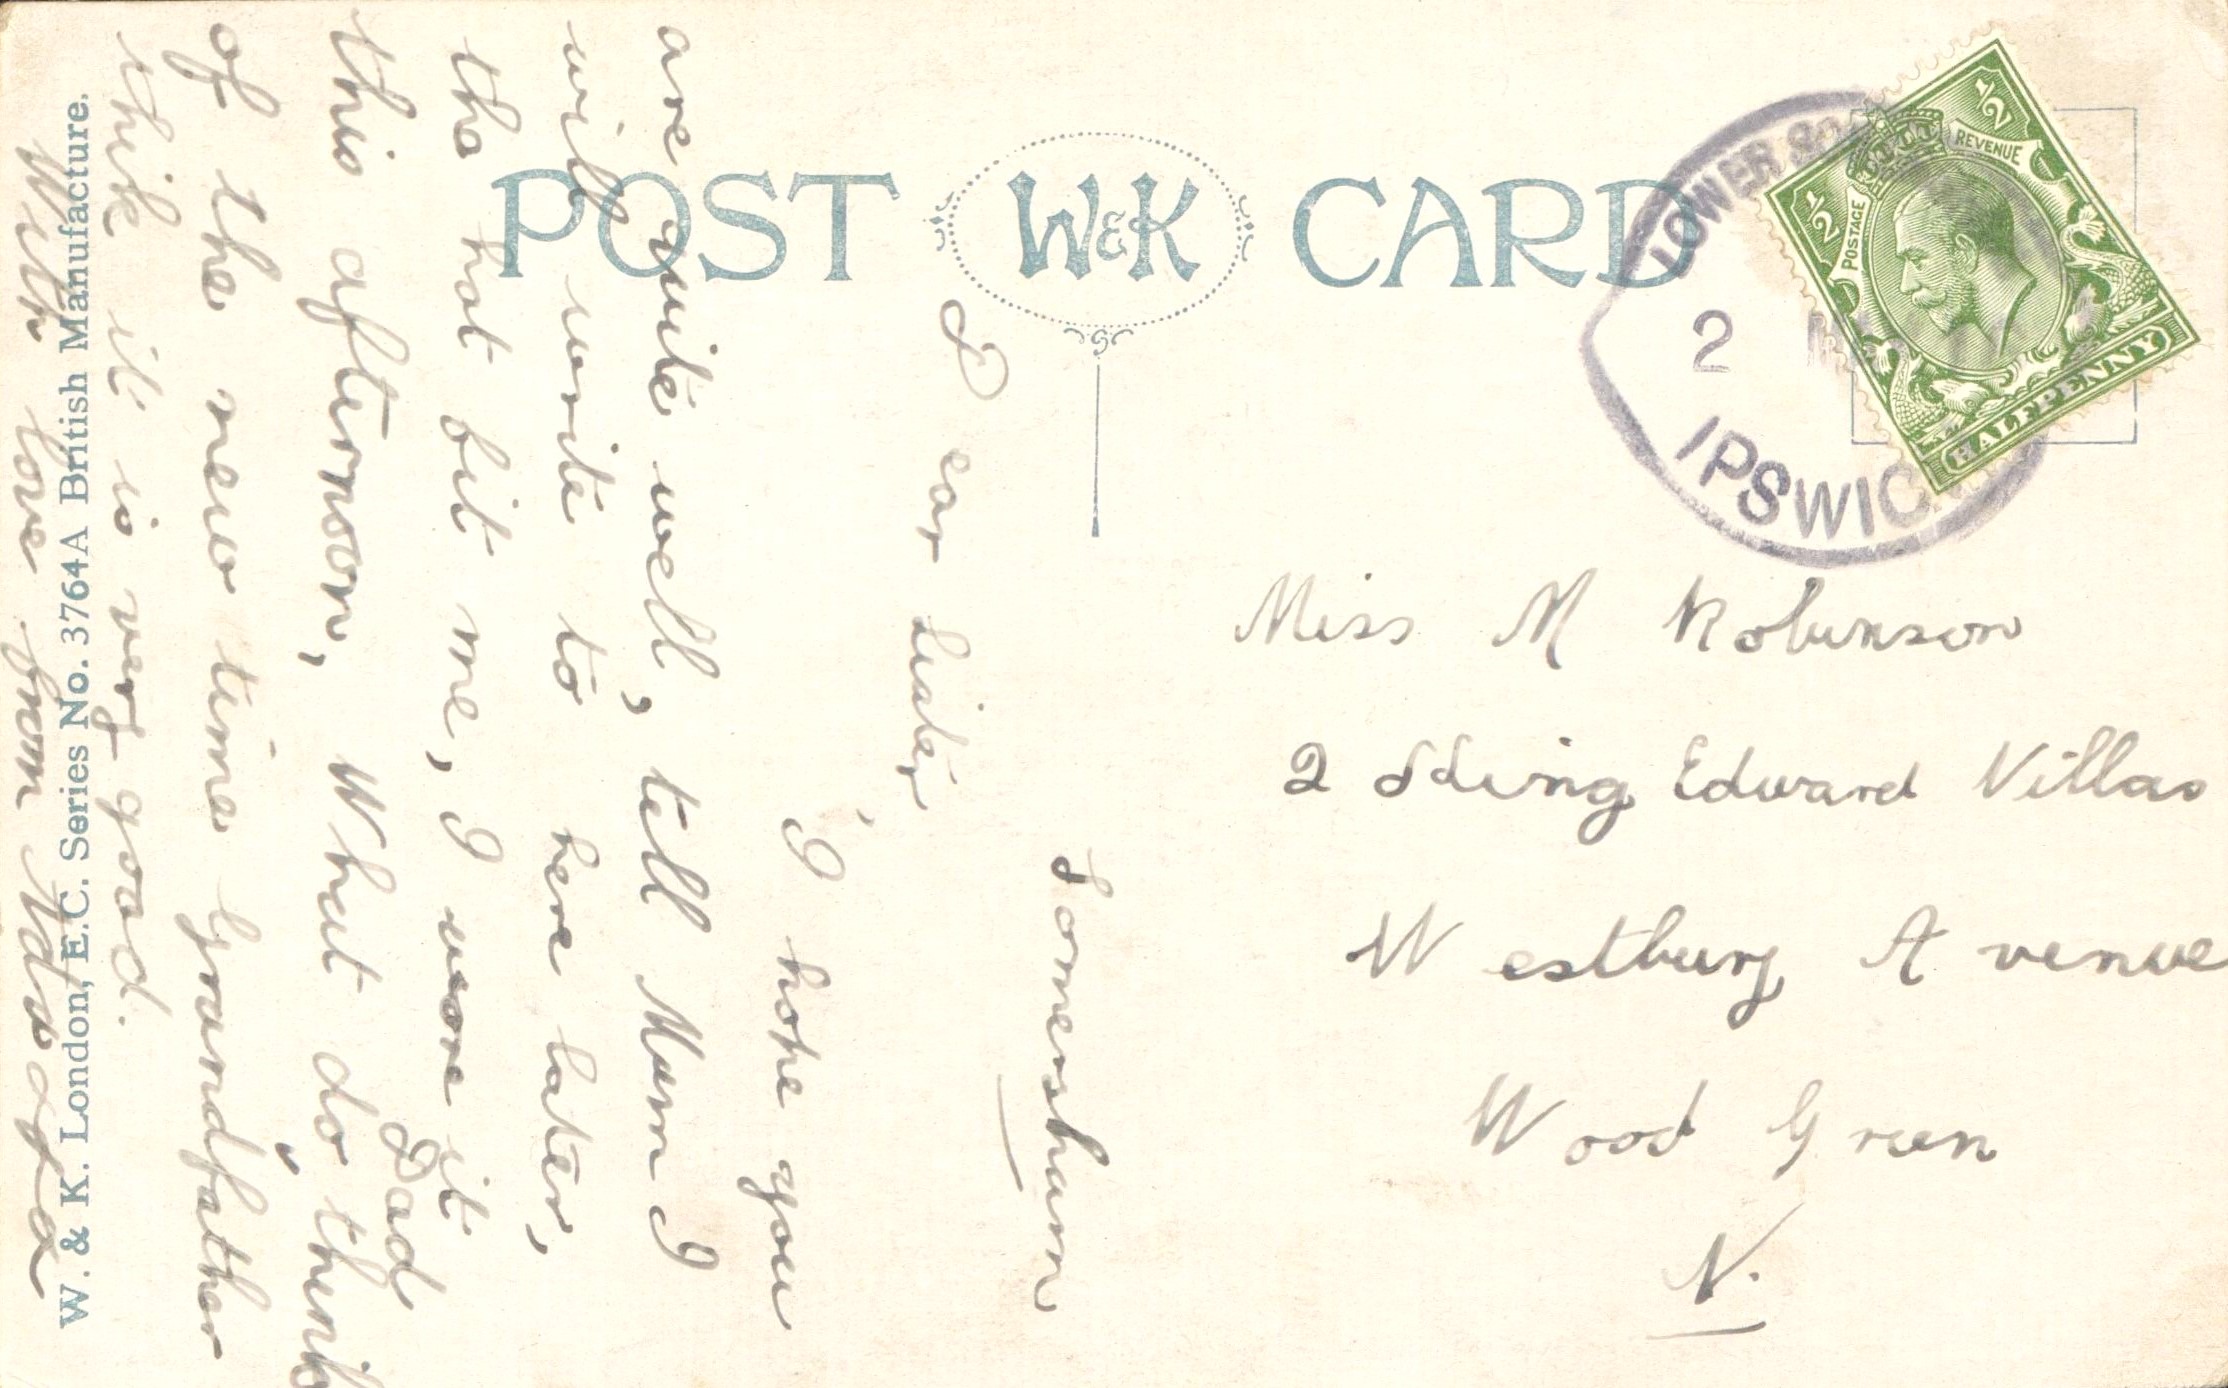 POST W&K CARD
½ ½
POSTAGE REVENUE
HALFPENNY
LOWER
2
IPSWICH
Miss M Robinson
2 King Edward Villas
Westbury Avenue
Wood Green
N.
Somersham
Dear Sister,
I hope you
are quite well, tell Mum I
will write to here later,
the hat bit me, I wore it
Dad
this afternoon, What do think
of the new time Grandfather
think it is very good.
With love from
W. & K. London, E.C. Series No. 3764A British Manufacture.